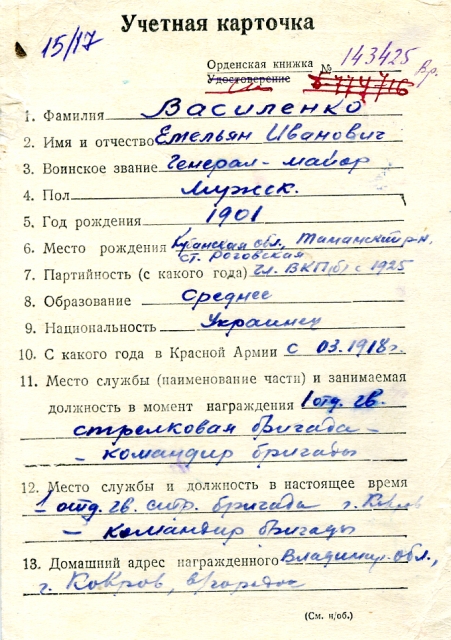 Учетная карточка
15/17
Орденская книжка № 143425 Вр.
Удостоверение
1. Фамилия Василенко
2. Имя и отчество Емельян Иванович
3. Воинское звание Генерал-майор
4. Пол Мужск.
5. Год рождения 1901
6. Место рождения Кубанская обл., Таманский р-н,
ст. Роговская
7. Партийность (с какого года) чл. ВКП(б) с 1925
8. Образование среднее
9. Национальность Украинец
10. С какого года в Красной Армии с 03.1918г.
11. Место службы (наименование части) и занимаемая
должность в момент награждения 1 отд. гв.
стрелковая бригада –
– командир бригады
12. Место службы и должность в настоящее время
1 отд. гв. стр. бригада г. Ковров
– командир бригады
13. Домашний адрес награжденного Владимир. обл.,
г. Ковров, в/городок
(См. н/об.)